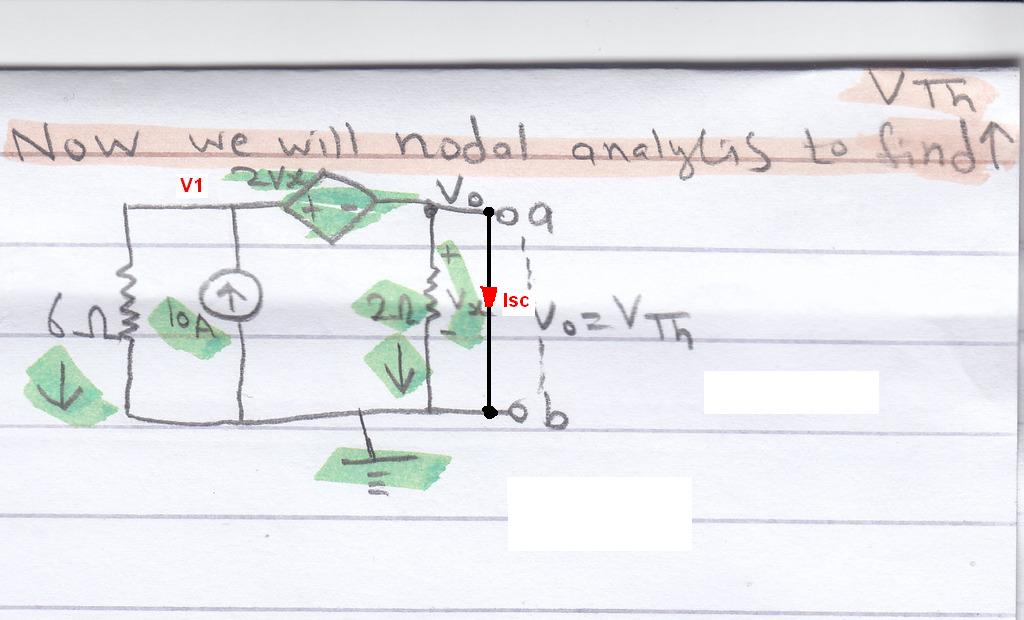 VTh
Now we will nodal analysis to find↑
V1
2Vx
+ -
Vo
a
+
6Ω
10A
2Ω
Vx
Isc
Vo=VTh
-
b